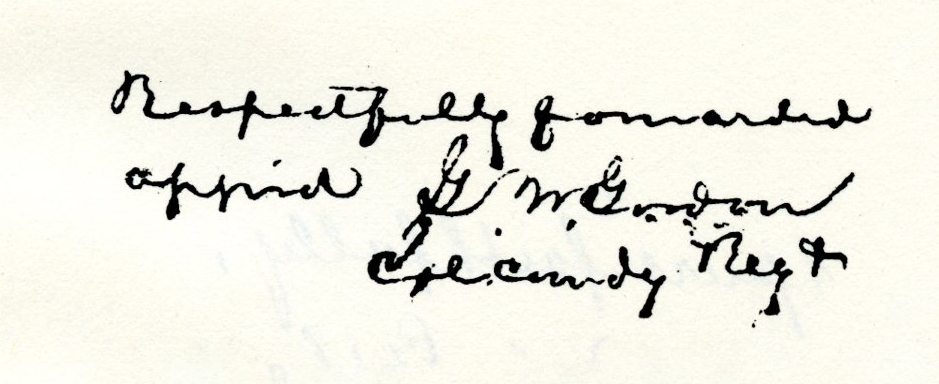 Respectfully forwarded
appr'd G. W. Gordon
Col. comdg Regt